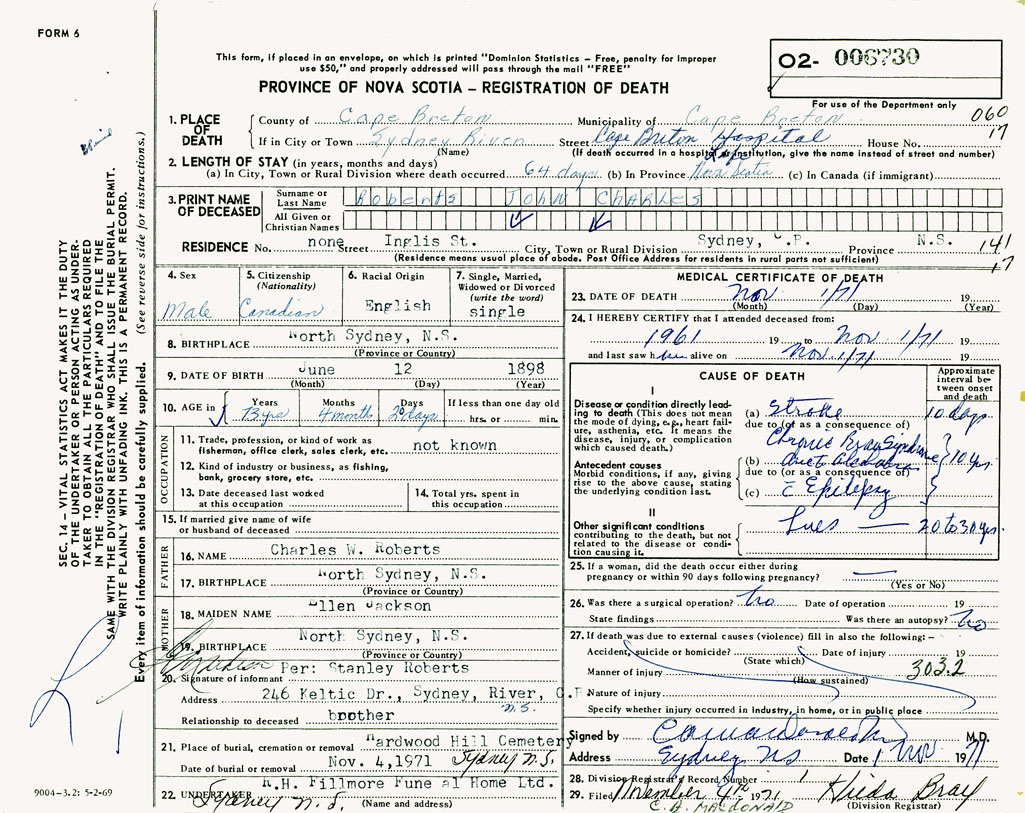 FORM 6
This form, if placed in an envelope, on which is printed "Dominion Statistics – Free, penalty for improper
use $50," and properly addressed will pass through the mail "FREE"
PROVINCE OF NOVA SCOTIA – REGISTRATION OF DEATH
02- 006730
For use of the Department only
060
17
1. PLACE OF DEATH
County of Cape Breton Municipality of Cape Breton
If in City or Town Sydney River Street Cape Breton Hospital House No.
(Name) (If death occurred in a hospital or institution, give the name instead of street and number)
2. LENGTH OF STAY (in years, months and days)
(a) In City, Town or Rural Division where death occurred 64 days (b) In Province Nova Scotia (c) In Canada (if immigrant)
3. PRINT NAME OF DECEASED
Surname or Last Name Roberts John Charles
All Given or Christian Names
RESIDENCE No. none Street Inglis St. City, Town or Rural Division Sydney, C.B. Province N.S.
141
17
(Residence means usual place of abode. Post Office Address for residents in rural parts not sufficient)
4. Sex
Male
5. Citizenship
(Nationality)
Canadian
6. Racial Origin
English
7. Single, Married,
Widowed or Divorced
(write the word)
single
8. BIRTHPLACE North Sydney, N.S.
(Province or Country)
9. DATE OF BIRTH June 12 1898
(Month) (Day) (Year)
10. AGE in Years Months Days If less than one day old
73 yrs 4 months 20 days hrs. or min.
OCCUPATION
11. Trade, profession, or kind of work as
fisherman, office clerk, sales clerk, etc. not known
12. Kind of industry or business, as fishing,
bank, grocery store, etc.
13. Date deceased last worked
at this occupation
14. Total yrs. spent in
this occupation
15. If married give name of wife
or husband of deceased
FATHER
16. NAME Charles W. Roberts
17. BIRTHPLACE North Sydney, N.S.
(Province or Country)
MOTHER
18. MAIDEN NAME Ellen Jackson
19. BIRTHPLACE North Sydney, N.S.
(Province or Country)
Per: Stanley Roberts
20. Signature of informant
Address 246 Keltic Dr., Sydney, River, C.B
N.S.
Relationship to deceased brother
21. Place of burial, cremation or removal Hardwood Hill Cemetery
Date of burial or removal Nov. 4,1971 Sydney N.S.
22. UNDERTAKER A.H. Fillmore Fune al Home Ltd.
Sydney N.S. (Name and address)
MEDICAL CERTIFICATE OF DEATH
23. DATE OF DEATH Nov 1/71 19
(Month) (Day) (Year)
24. I HEREBY CERTIFY that I attended deceased from:
1961 19 to Nov 1/71
and last saw him alive on Nov 1/71 19
CAUSE OF DEATH
Approximate
interval be-
tween onset
and death
I
Disease or condition directly lead-
ing to death (This does not mean
the mode of dying, e.g., heart fail-
ure, asthenia, etc. It means the
disease, injury, or complication
which caused death.)
(a) Stroke 10 days
due to (or as a consequence of)
Chronic Brain Syndrome
Antecedent causes
Morbid conditions, if any, giving
rise to the above cause, stating
the underlying condition last.
(b) 10 yrs
due to (or as a consequence of)
(c) c̄ Epilepsy
II
Other significant conditions
contributing to the death, but not
related to the disease or condi-
tion causing it.
Lues — 20 to 30 yrs.
25. If a woman, did the death occur either during
pregnancy or within 90 days following pregnancy? —
(Yes or No)
26. Was there a surgical operation? no Date of operation 19
State findings Was there an autopsy? no
27. If death was due to external causes (violence) fill in also the following:–
Accident, suicide or homicide? Date of injury 19
(State which)
303.2
Manner of injury
(How sustained)
Nature of injury
Specify whether injury occurred in industry, in home, or in public place
Signed by M.D.
Address Sydney NS Date 1 Nov 1971
28. Division Registrar's Record Number 1
29. Filed November 4th 1971 Hilda Bray
C. A. MACDONALD (Division Registrar)
SEC. 14 – VITAL STATISTICS ACT MAKES IT THE DUTY
OF THE UNDERTAKER OR PERSON ACTING AS UNDER-
TAKER TO OBTAIN ALL THE PARTICULARS REQUIRED
IN THE "REGISTRATION OF DEATH" AND TO FILE THE
SAME WITH THE DIVISION REGISTRAR WHO SHALL ISSUE THE BURIAL PERMIT.
WRITE PLAINLY WITH UNFADING INK. THIS IS A PERMANENT RECORD.
Every item of information should be carefully supplied. (See reverse side for instructions.)
9004-3.2: 5-2-69